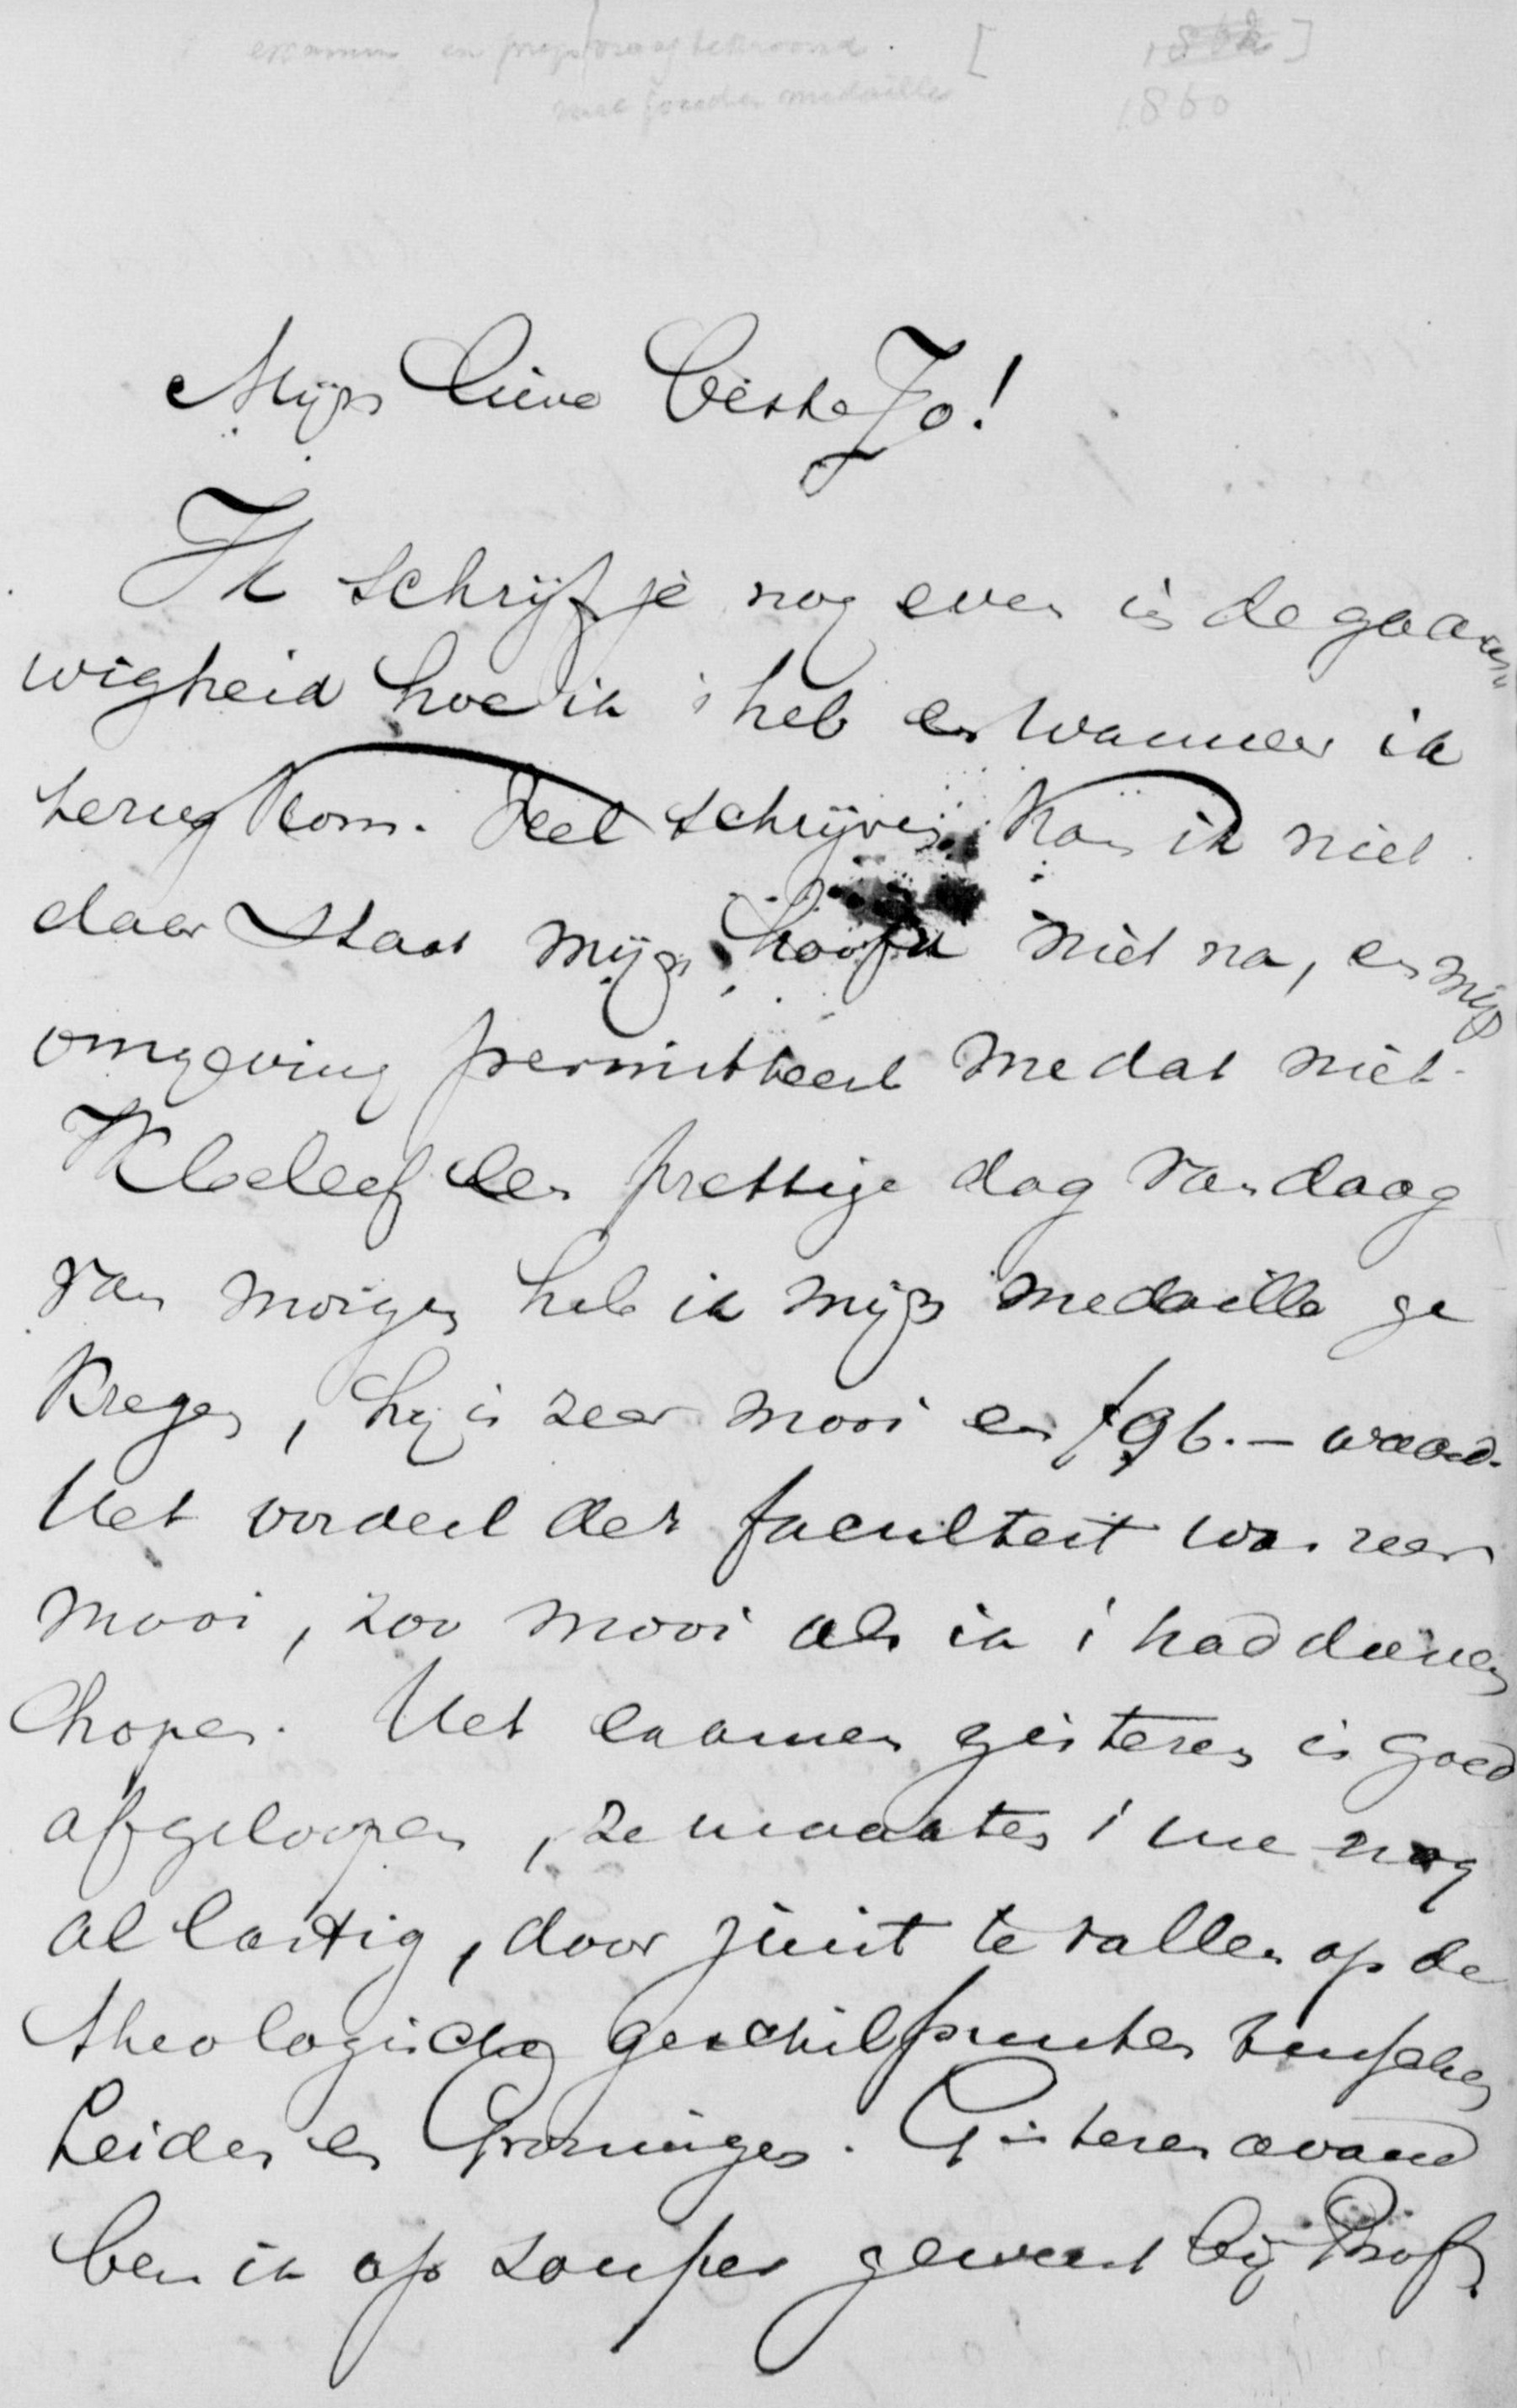 examen en prijsvraag bekroond. [ 1862 ]
met gouden medaille 1860
Mijn lieve beste Jo!
Ik schrijf je nog even in de gaauw
wigheid hoe ik 't heb en wanneer ik
terug kom. Veel schrijven kan ik niet
daar staat mijn hoofd niet na, en mijn
omgeving permitteert me dat niet.
Ik beleef een prettige dag vandaag
van morgen heb ik mijn medaille ge
kregen, hij is zeer mooi en f 96.— waard.
Het oordeel der faculteit was zeer
mooi, zoo mooi als ik 't had durven
hopen. Het examen gisteren is goed
afgeloopen, ze maakten 't me nog
al lastig, door juist te vallen op de
theologische geschilpunten tusschen
Leiden en Groningen. Gisteren avond
ben ik op souper geweest bij Prof.